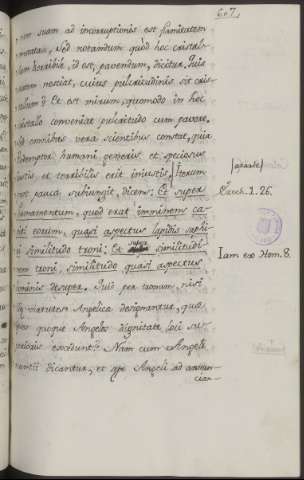 607.
nem suam ad incorruptionis est firmitatem
mutata. Sed notandum quòd hoc cristal-
lum horribile, id est, pavendum, dicitur. Quis
autem nesciat, cuius pulcritudinis sit cris-
tallum? Et est mirum, quomodo in hoc
cristallo conveniat pulcritudo cum pavore.
sed omnibus vera scientibus constat, quia
Redemptor humani generis et speciosus
iustis et terribilis erit iniustis. Iterum
post pauca subiungit, dicens: Et super
firmamentum, quod erat imminens ca-
piti eorum, quasi aspectus lapidis saphi-
ri similitudo troni: Et super similitudi-
nem troni, similitudo quasi aspectus
hominis desuper. Quid per tronum, nisi
virtutes Angelica designantur, quæ
quoque Angelos dignitate loci su-
perioris excedunt? Nam cum Angeli
nuntii dicantur, et ipse Angeli ad annun-
cian-
Ezech. 1. 26.
Iam ex Hom. 8.